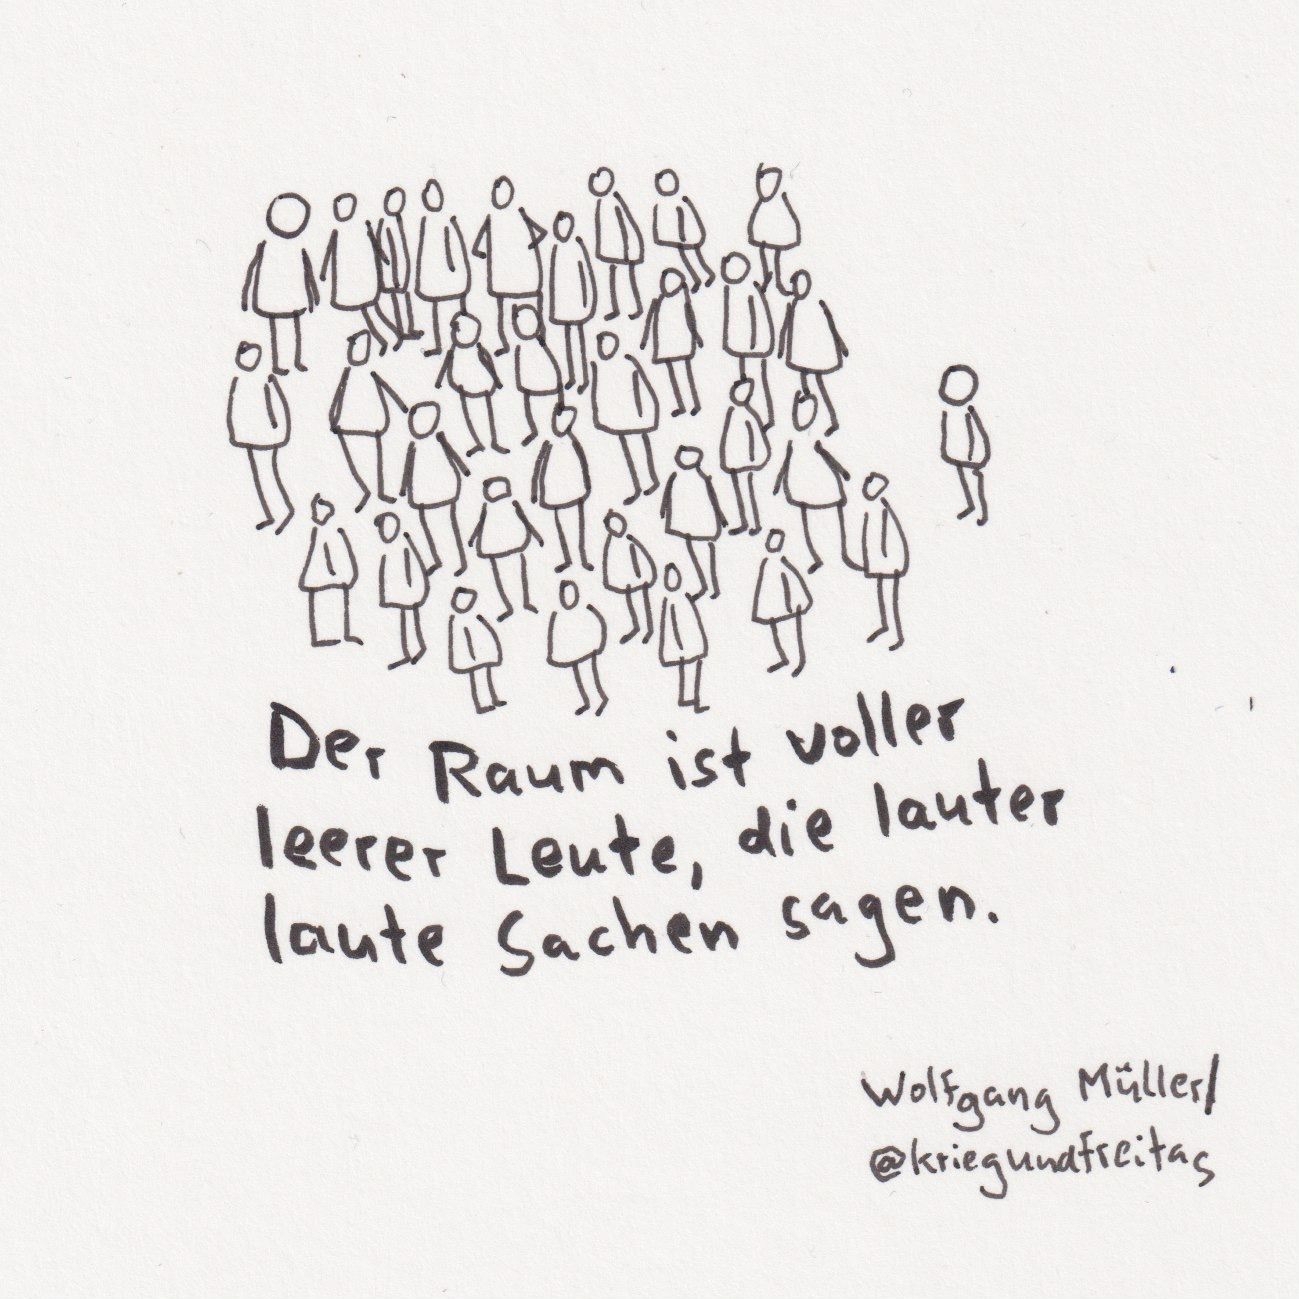 Der Raum ist voller
leerer Leute, die lauter
laute Sachen sagen.
Wolfgang Müller/
@kriegundfreitag